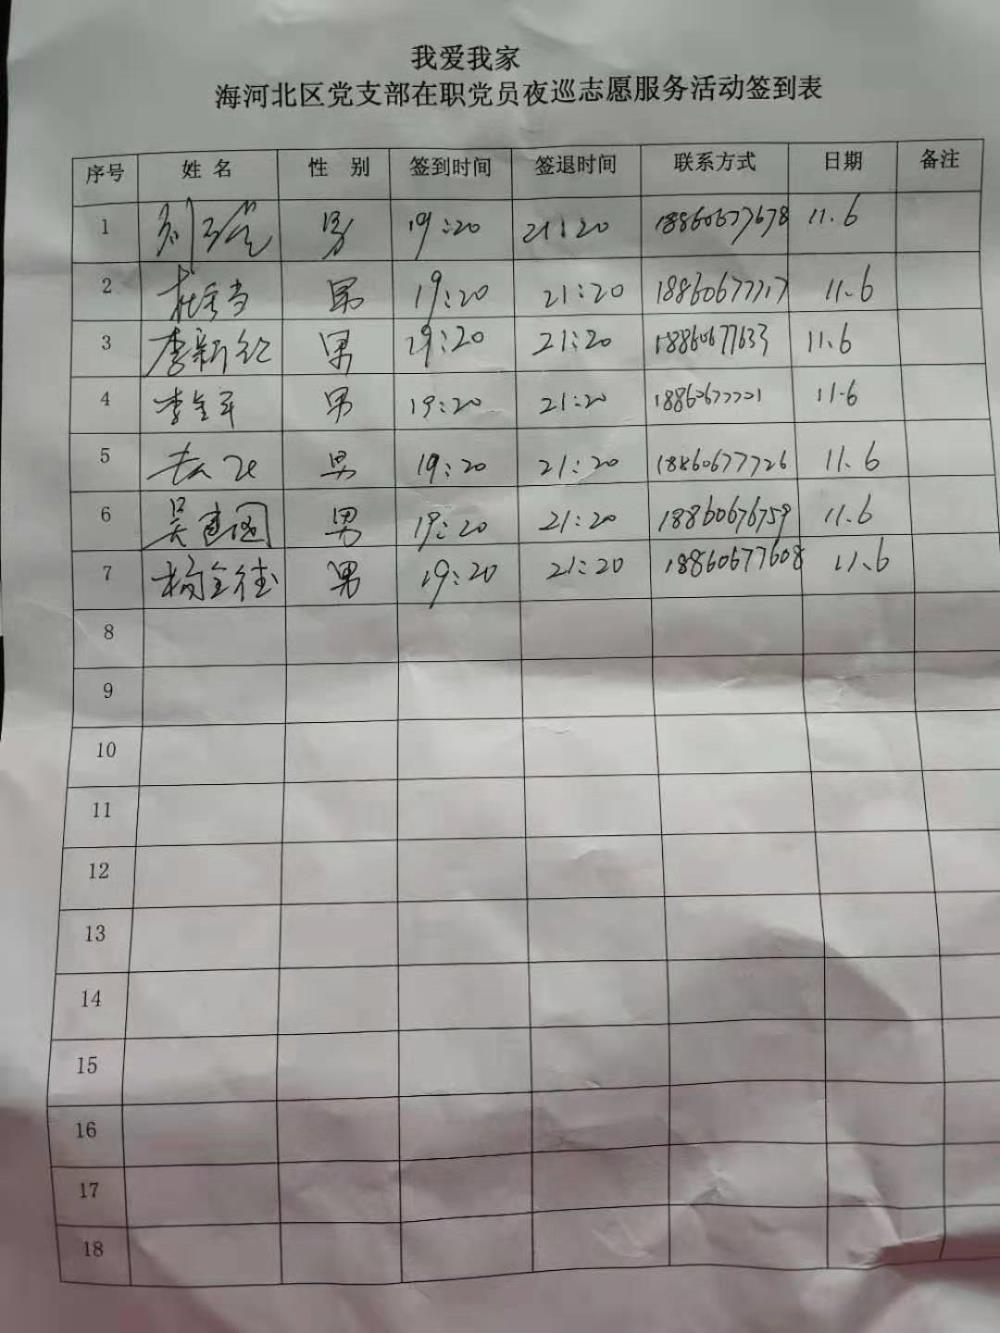 我爱我家
海河北区党支部在职党员夜巡志愿服务活动签到表
序号 姓名 性别 签到时间 签退时间 联系方式 日期 备注
1 男 19:20 21:20 18860677678 11.6
2 男 19:20 21:20 18860677717 11.6
3 李新红 男 19:20 21:20 18860677633 11.6
4 李全军 男 19:20 21:20 18860677721 11.6
5 男 19:20 21:20 18860677726 11.6
6 吴建国 男 19:20 21:20 18860676759 11.6
7 杨全德 男 19:20 21:20 18860677608 11.6
8
9
10
11
12
13
14
15
16
17
18